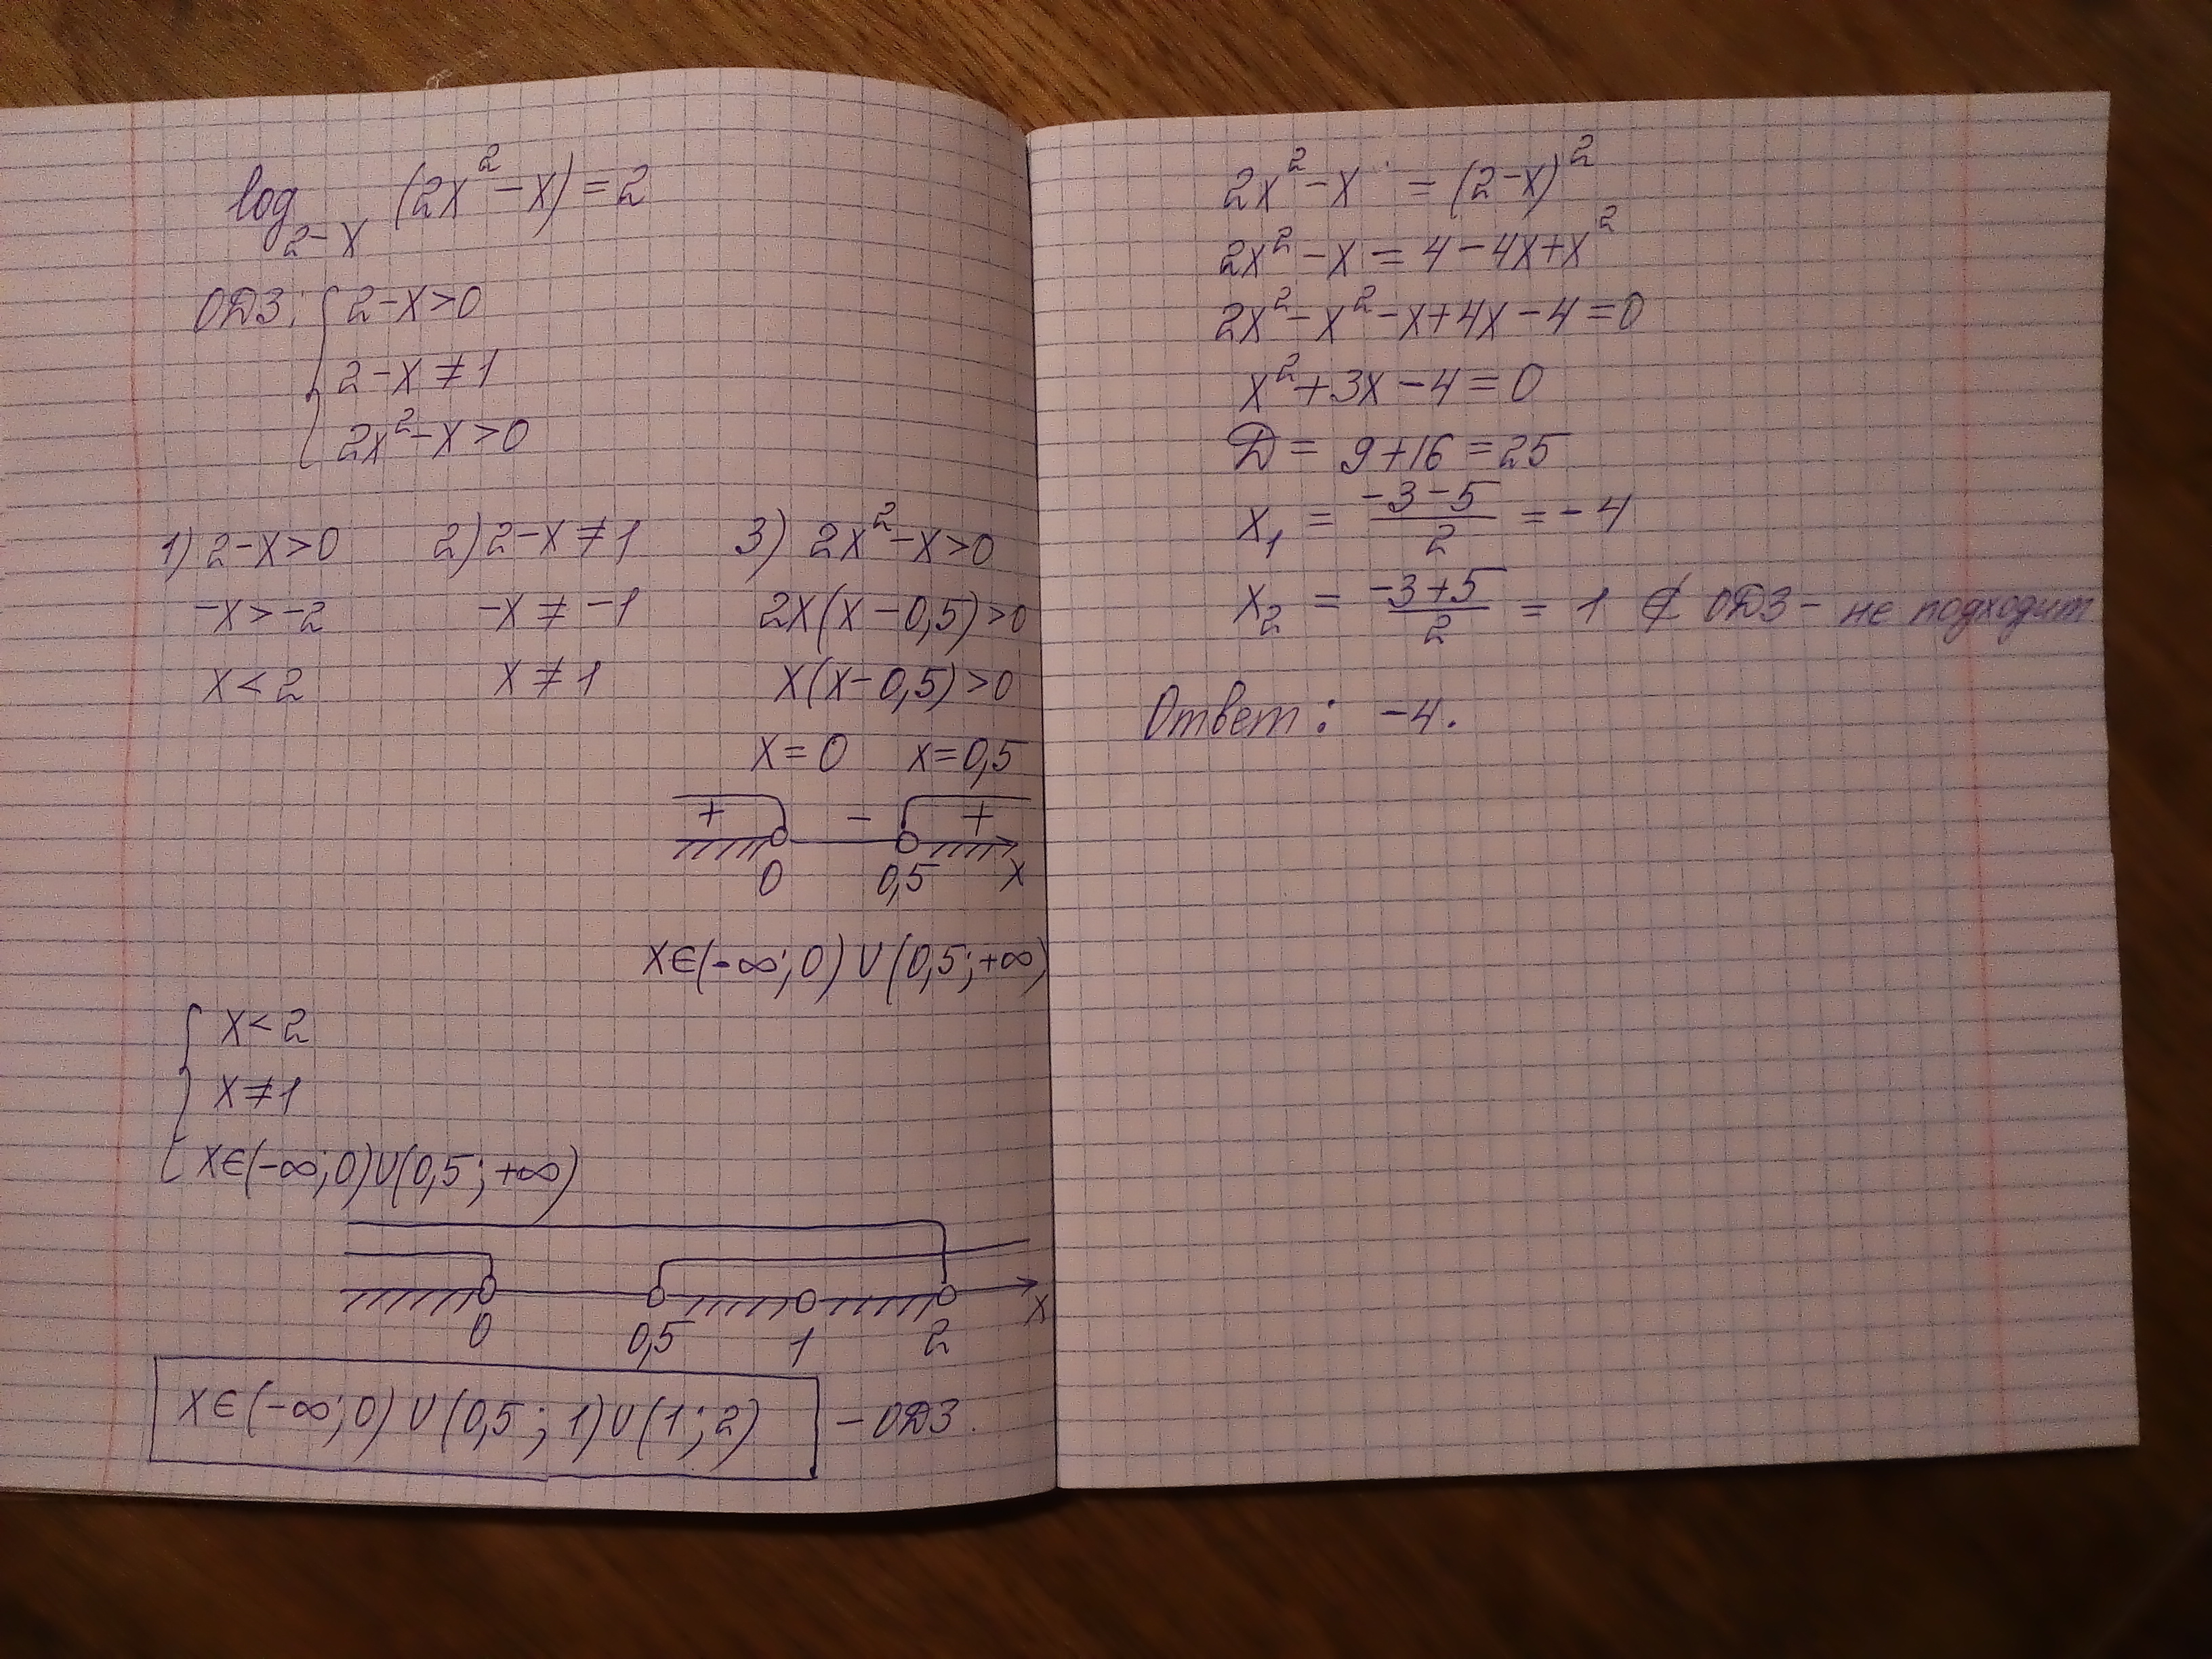 log₂₋ₓ (2x² − x) = 2
ОДЗ: { 2−x>0
2−x ≠ 1
2x²−x>0
1) 2−x>0 2) 2−x ≠ 1 3) 2x²−x>0
−x>−2 −x ≠ −1 2x(x−0,5)>0
x<2 x ≠ 1 x(x−0,5)>0
x=0 x=0,5
+ − +
0 0,5 x
x∈(−∞;0)∪(0,5;+∞)
{ x<2
x≠1
x∈(−∞;0)∪(0,5;+∞)
0 0,5 1 2 x
x∈(−∞;0)∪(0,5;1)∪(1;2) − ОДЗ.
2x²−x = (2−x)²
2x²−x = 4−4x+x²
2x²−x²−x+4x−4=0
x²+3x−4=0
D = 9+16=25
x₁ = (−3−5)/2 = −4
x₂ = (−3+5)/2 = 1 ⊄ ОДЗ − не подходит
Ответ: −4.